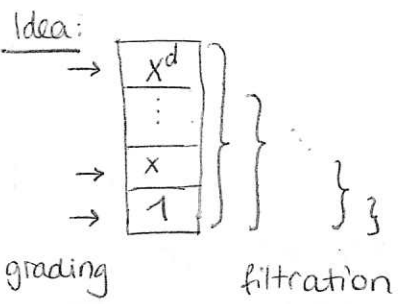 Idea:
x^d
⋮
x
1
grading filtration